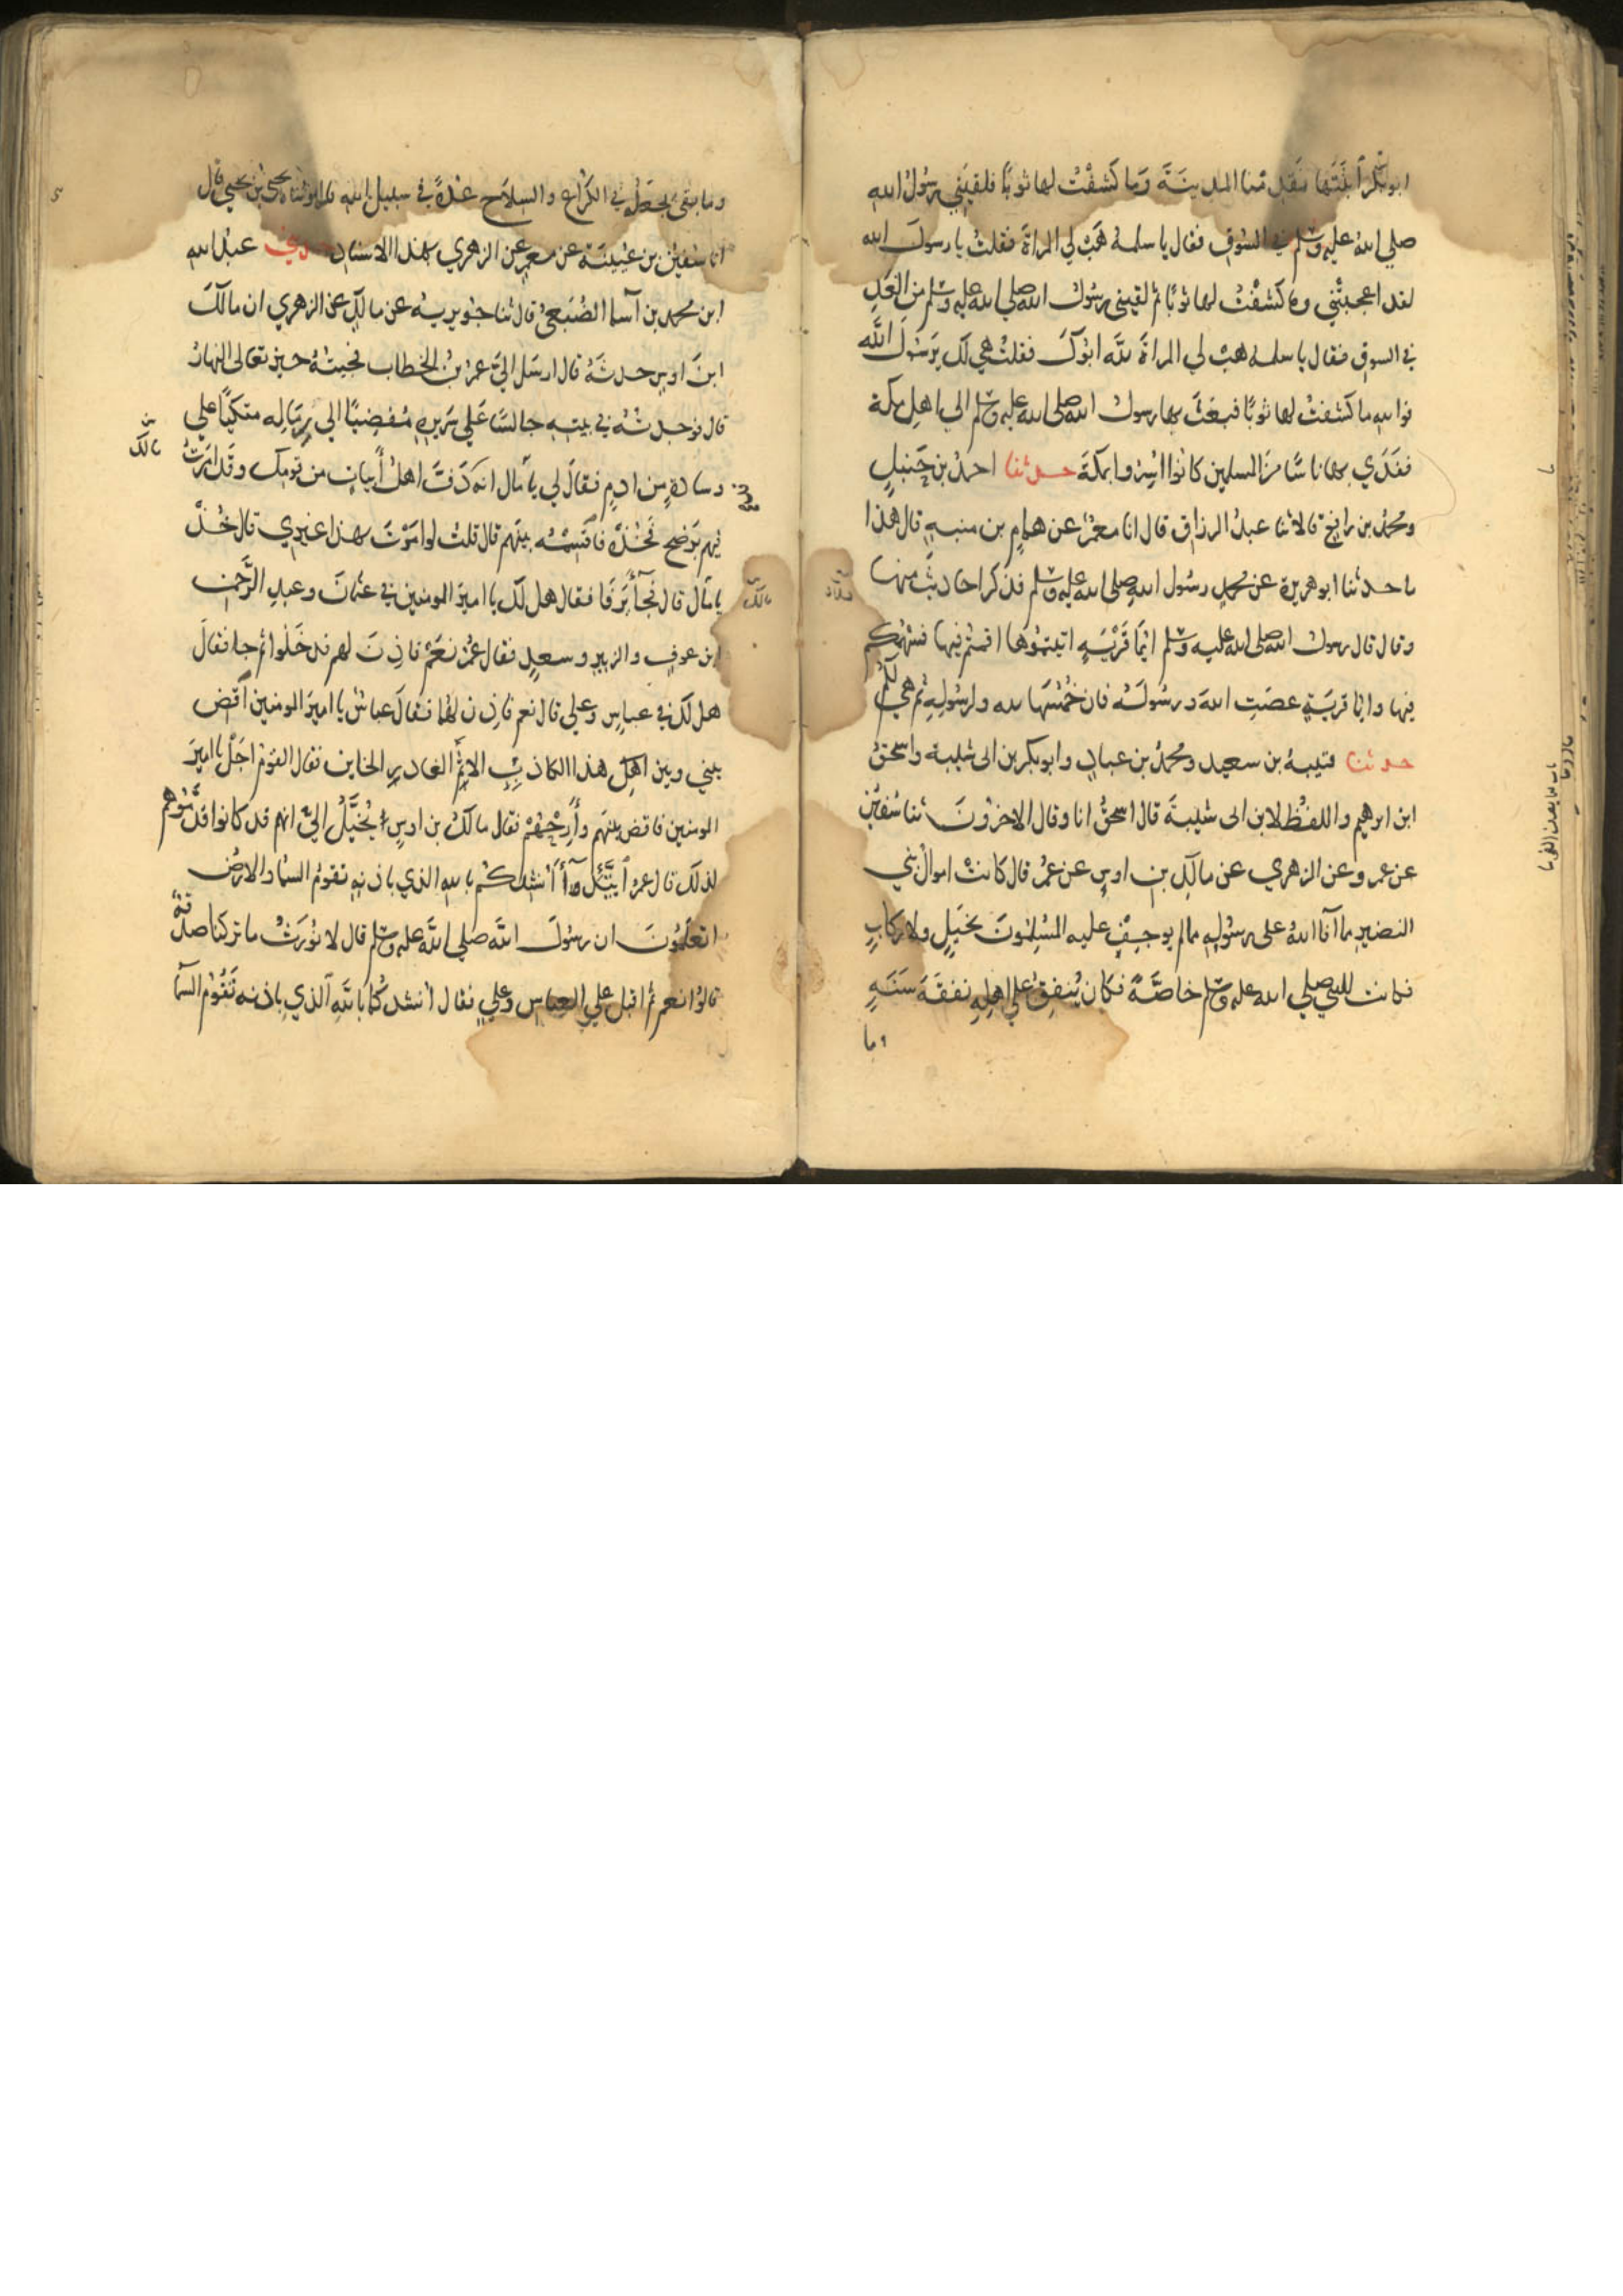 ابو بكر ابنتها فقدمنا المدينة وما كشفت لها ثوبا فلقيني رسول الله
صلى الله عليه وسلم في السوق فقال يا سلمة هب لي المراة فقلت يا رسول الله
لقد اعجبتني وما كشفت لها ثوبا ثم لقيني رسول الله صلى الله عليه وسلم من الغد
في السوق فقال يا سلمة هب لي المراة لله ابوك فقلت هي لك يرسول الله
فوالله ما كشفت لها ثوبا فبعث بها رسول الله صلى الله عليه وسلم الى اهل مكة
ففدي بها ناسا من المسلمين كانوا اسروا بمكة حدثنا احمد بن حنبل
ومحمد بن رافع قالا ثنا عبد الرزاق قال انا معمر عن همام بن منبه قال هذا
ما حدثنا ابو هريرة عن محمد رسول الله صلى الله عليه وسلم فذكر احاديث منها
وقال قال رسول الله صلى الله عليه وسلم ايما قرية اتيتموها اقمتم فيها فسهمكم
فيها وايما قرية عصت الله ورسوله فان خمسها لله ولرسوله ثم هي لكم
حدثنا قتيبة بن سعيد ومحمد بن عباد وابو بكر بن ابي شيبة واسحق
ابن ابرهيم واللفظ لابن ابي شيبة قال اسحق انا وقال الاخرون ثنا سفين
عن عمرو عن الزهري عن مالك بن اوس عن عمر قال كانت اموال بني
النضير مما آفا الله على رسوله مما لم يوجف عليه المسلمون بخيل ولا ركاب
فكانت للنبي صلى الله عليه وسلم خاصة فكان ينفق على اهله نفقة سنة
وما
وما بقي يجعله في الكراع والسلاح عدة في سبيل الله يحيى بن يحيى قال
انا سفين بن عيينة عن معمر عن الزهري بهذا الاسناد عبد الله
ابن محمد بن آسما الضبعي قال ثنا جويرية عن مالك عن الزهري ان مالك
ابن اوس حدثه قال ارسل الي عمر بن الخطاب فجيته حين تعالى النهار
قال فوجدته في بيته جالسا على سرير مفضيا الى رماله متكيا على
مالك
وسادة من ادم فقال لي يا مال انه قد دف اهل ابيات من قومك وقد امرت
فيهم برضخ فخذه فاقسمه بينهم قال قلت لو امرت بهذا غيري قال خذه
يا مال قال فجا يرفا فقال هل لك يا امير المومنين في عثمان وعبد الرحمن
مالك
ابن عوف والزبير وسعد فقال عمر نعم فاذن لهم فدخلوا ثم جا فقال
هل لك في عباس وعلي قال نعم فاذن لهما فقال عباس يا امير المومنين اقض
بيني وبين هذا الكاذب الاثم الغادر الخاين فقال القوم اجل يا امير
المومنين فاقض بينهم وارحهم فقال مالك بن اوس يخيل الي انهم قد كانوا قدموهم
لذلك قال عمر اتئدا انشدكم بالله الذي باذنه تقوم السما والارض
اتعلمون ان رسول الله صلى الله عليه وسلم قال لا نورث ما تركنا صدقة
قالوا نعم ثم اقبل على العباس وعلي فقال انشدكما بالله الذي باذنه تقوم السما